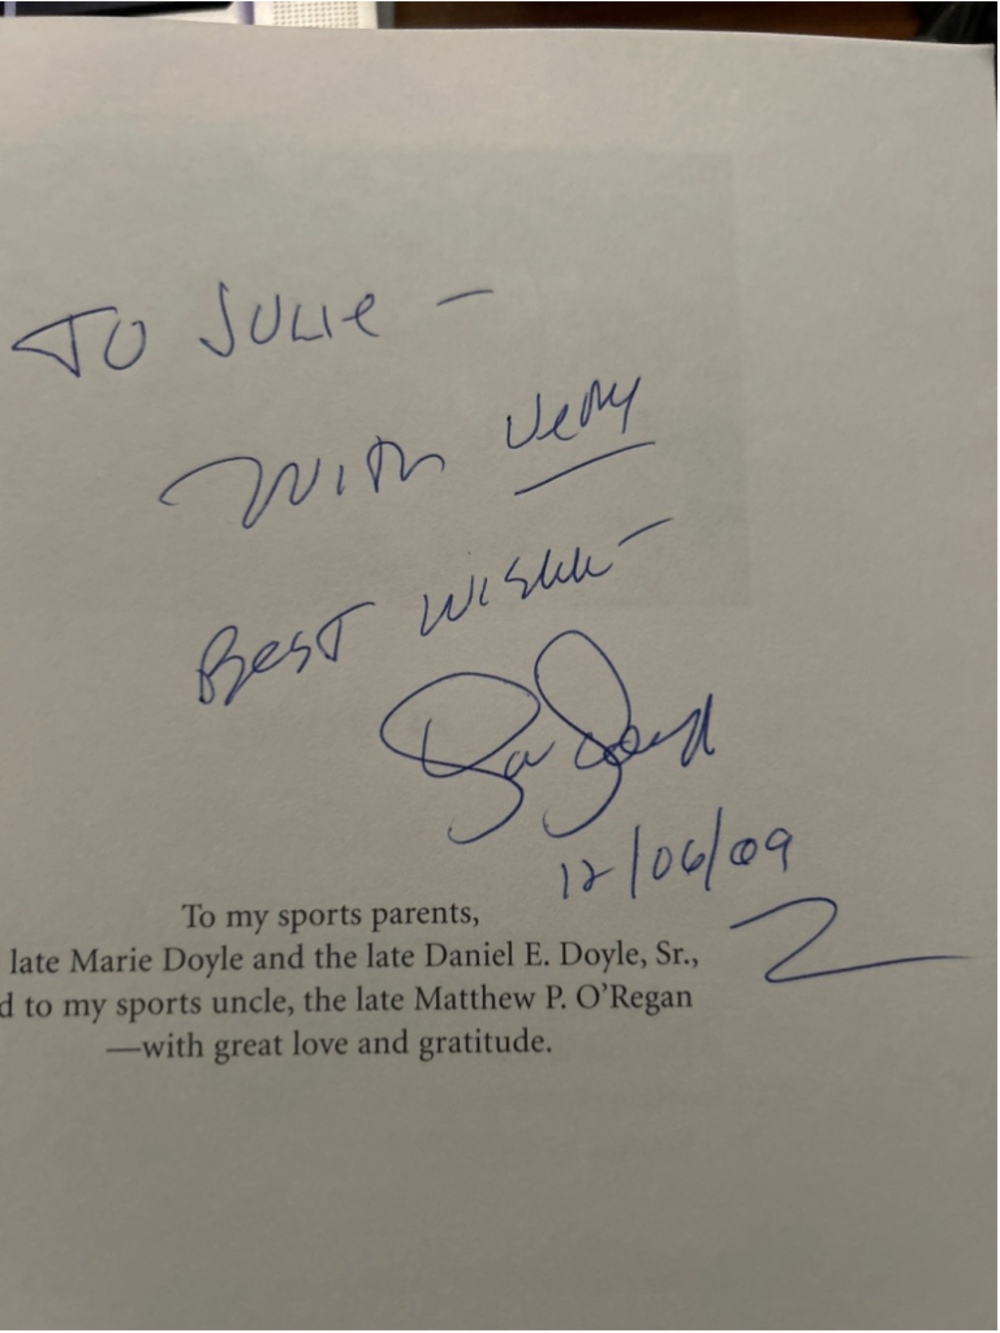 TO JULIE —
WITH Very
BEST WISHES —
12/06/09
To my sports parents,
late Marie Doyle and the late Daniel E. Doyle, Sr.,
d to my sports uncle, the late Matthew P. O'Regan
—with great love and gratitude.